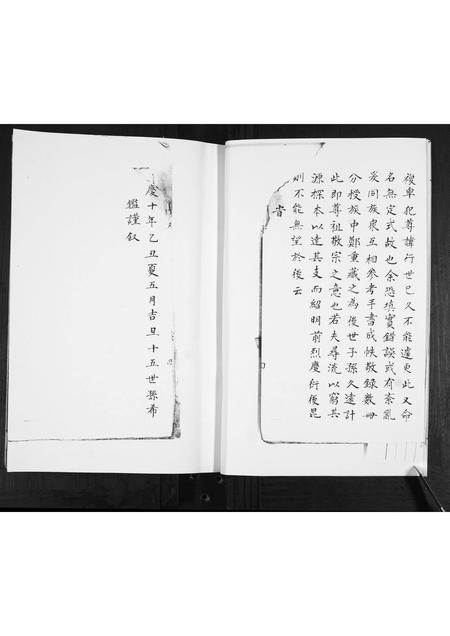 復卑犯尊諱行世已久不能遽更此又命
名無定式故也余恐填實錯誤或有紊亂
爰同族衆互相參考手書成帙敬録數冊
分授族中鄭重藏之為後世子孫久遠計
此即尊祖敬宗之意也若夫尋流以窮其
源探本以達其支而紹明前烈慶衍後昆
則不能無望於後云
旹
慶十年乙丑夏五月吉旦十五世孫希
鑑謹叙